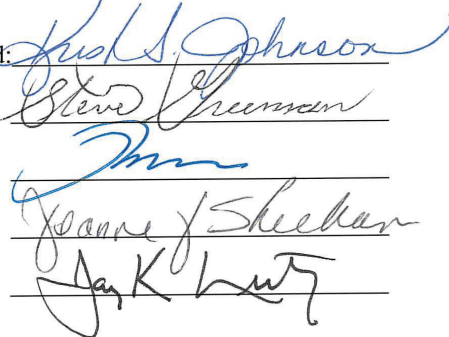 d: Kris S. Johnson
Steve Greenman
Joanne J Sheehan
Jay K Lutz